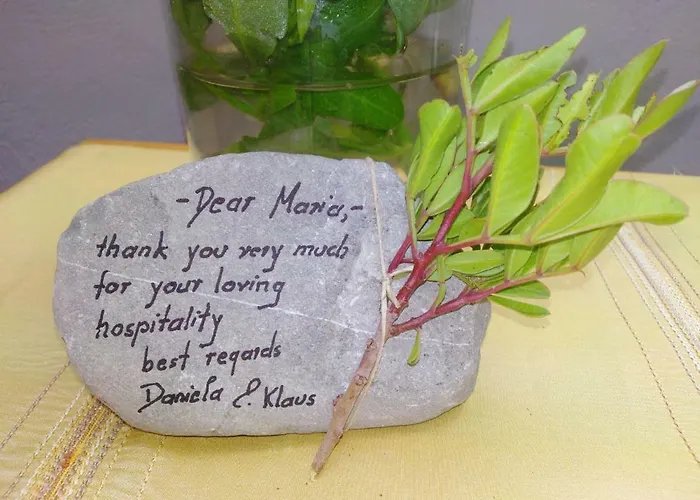 -Dear Maria,-
thank you very much
for your loving
hospitality
best regards
Daniela & Klaus